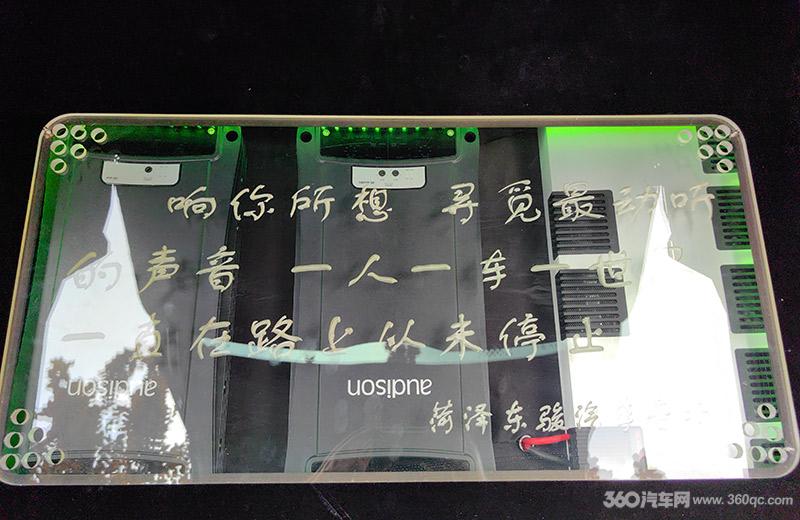 响你所想 寻觅最动听
的声音 一人一车一世
一直在路上从未停止
audison
audison
菏泽东骏汽车音响
360汽车网 www.360qc.com